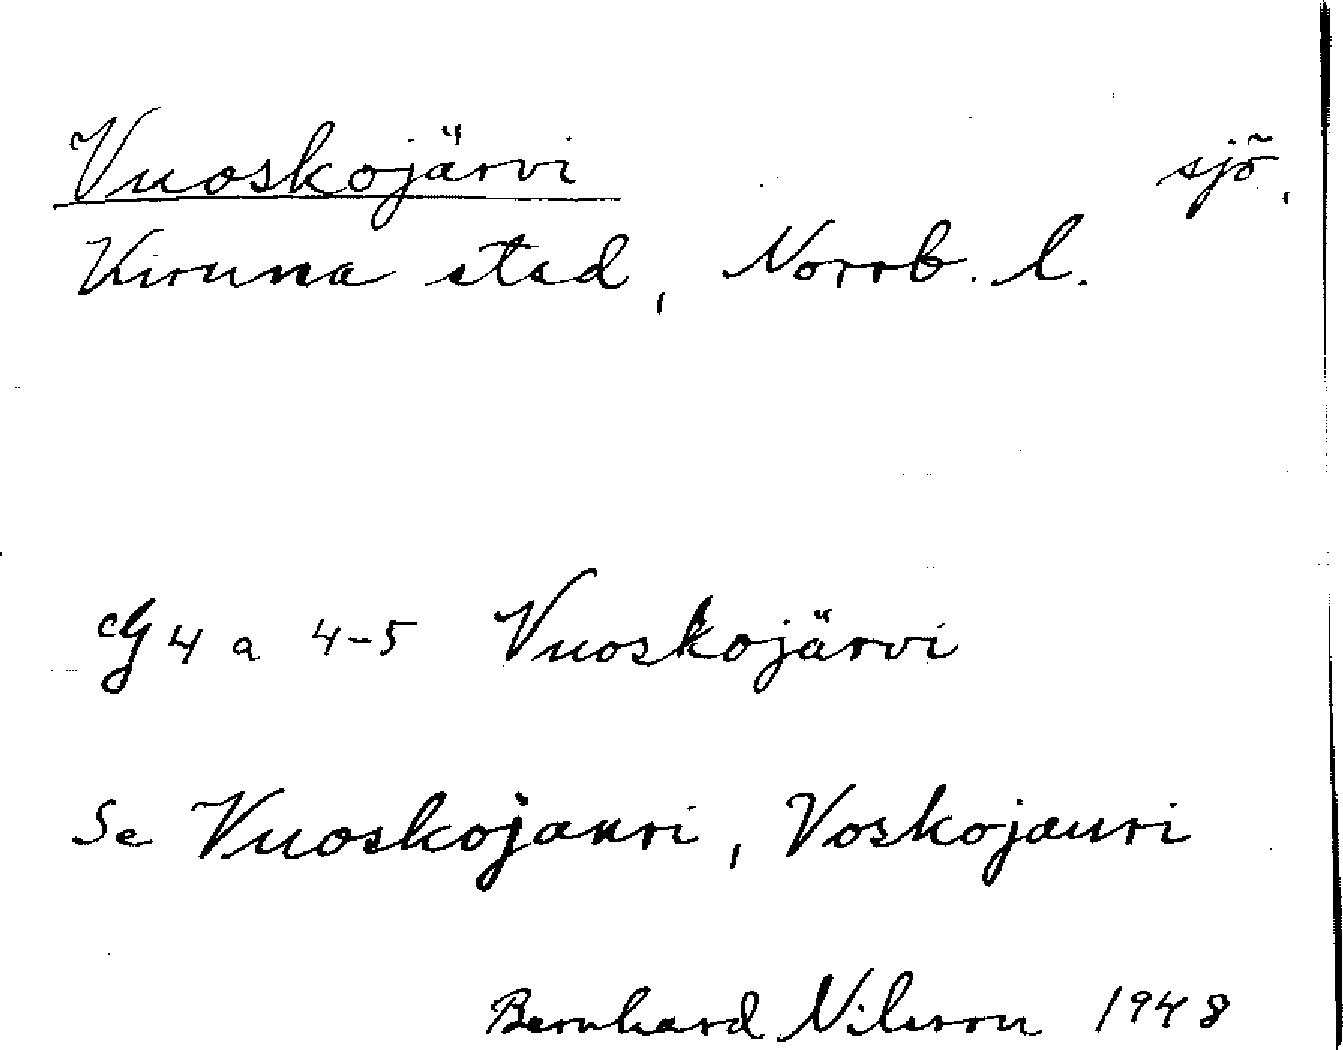 Vuoskojärvi sjö.
Kiruna stad, Norrb. l.
G 4 a 4-5 Vuoskojärvi
Se Vuoskojauri, Voskojauri
Bernhard Nilsson 1948